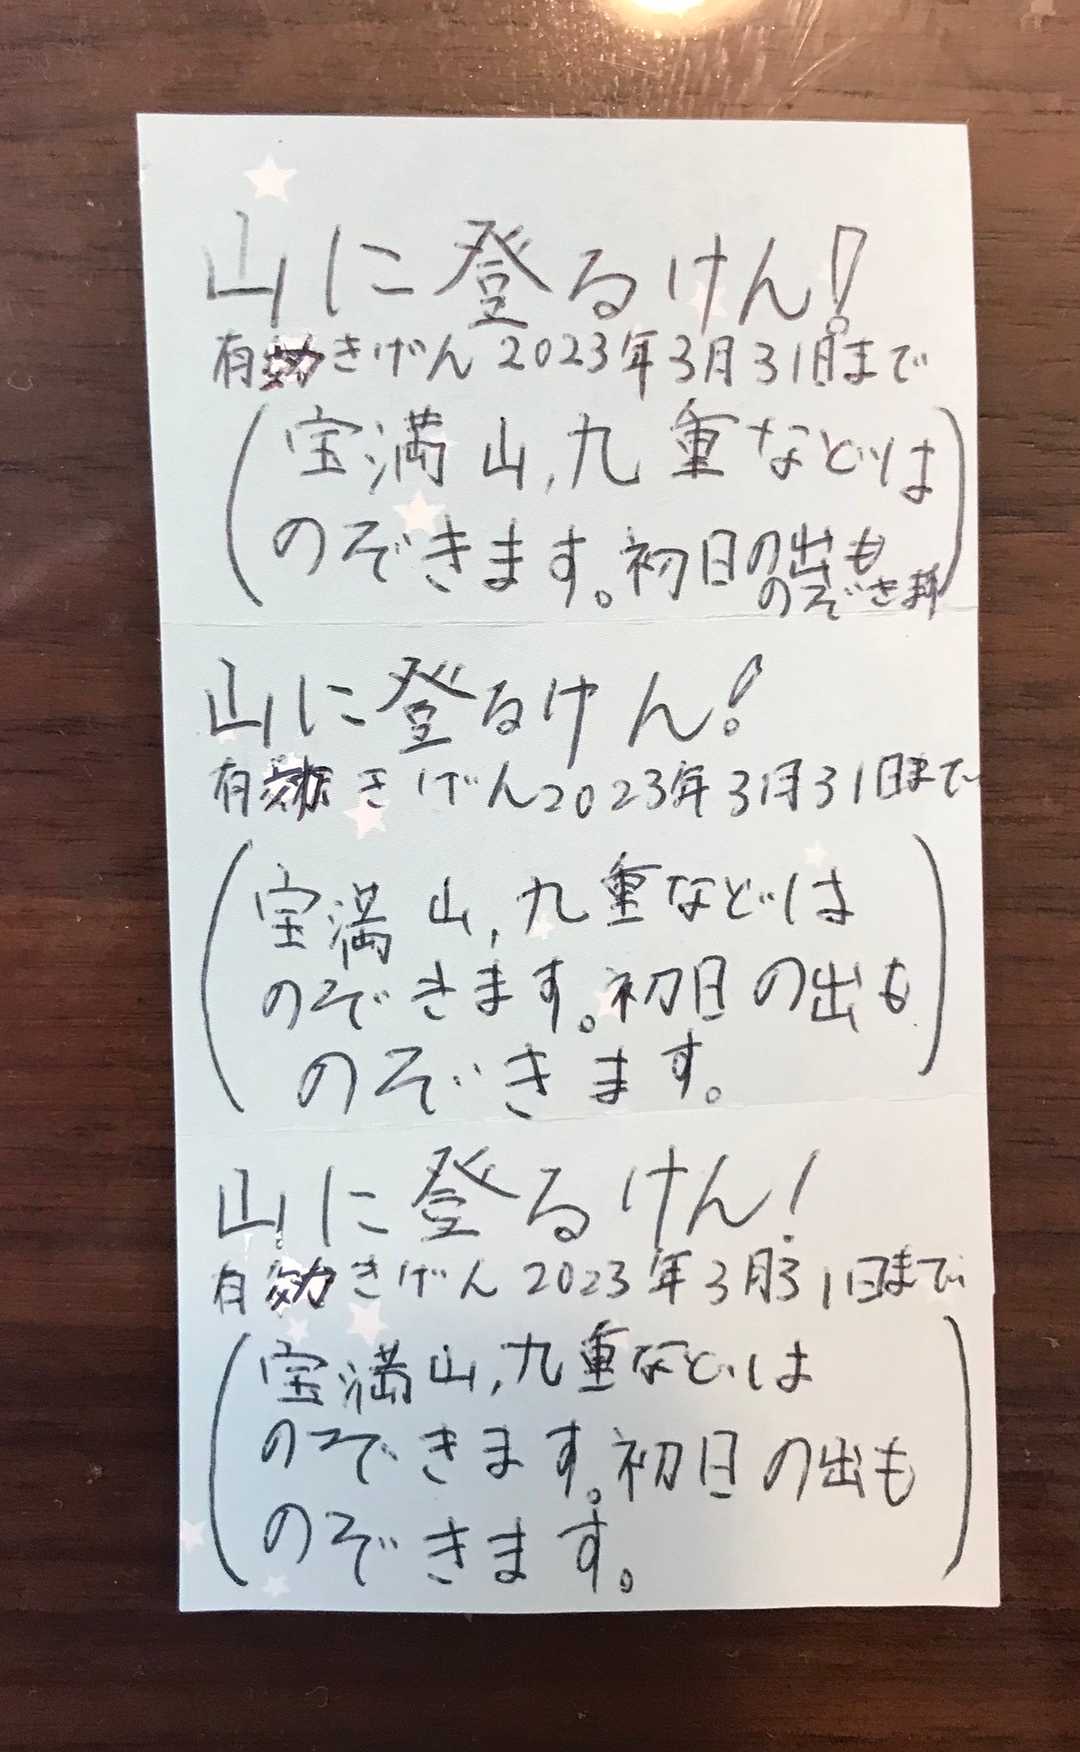 山に登るけん!
有効きげん2023年3月31日まで
(宝満山,九重などは
のぞきます。初日の出も
のぞきます)
山に登るけん!
有効きげん2023年3月31日まで
(宝満山,九重などは
のぞきます。初日の出も
のぞきます。)
山に登るけん!
有効きげん2023年3月31日まで
(宝満山,九重などは
のぞきます。初日の出も
のぞきます。)